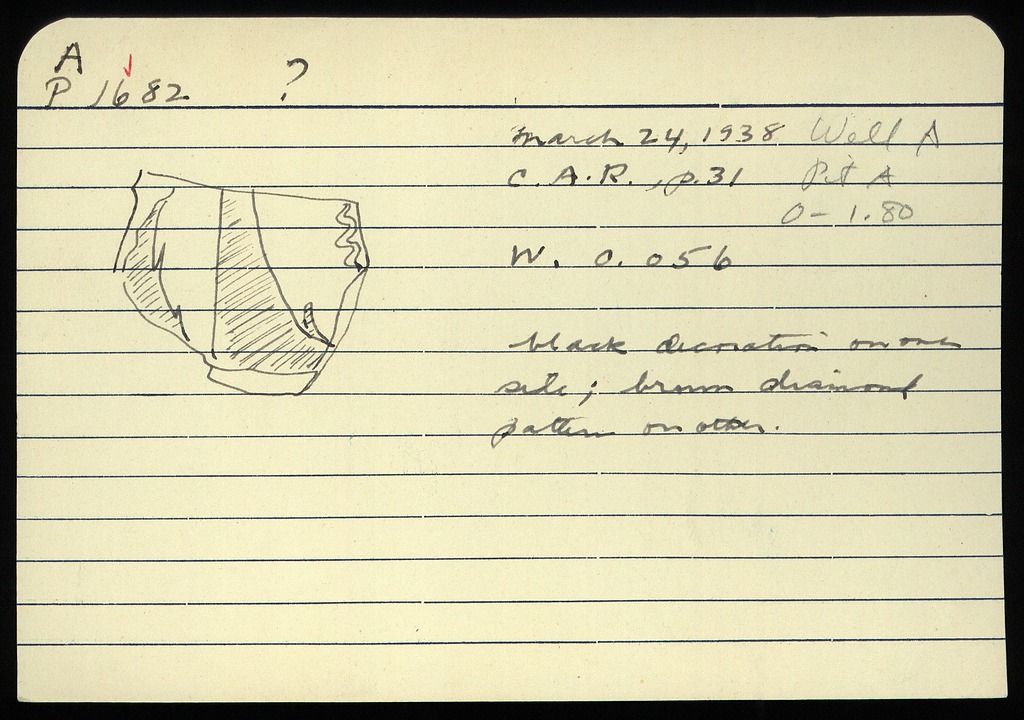 A
P 1682 ?
March 24, 1938 Well A
C.A.R., p.31 Pit A
0-1.80
W. 0.056
black decoration on one
side; brown diamond
pattern on other.